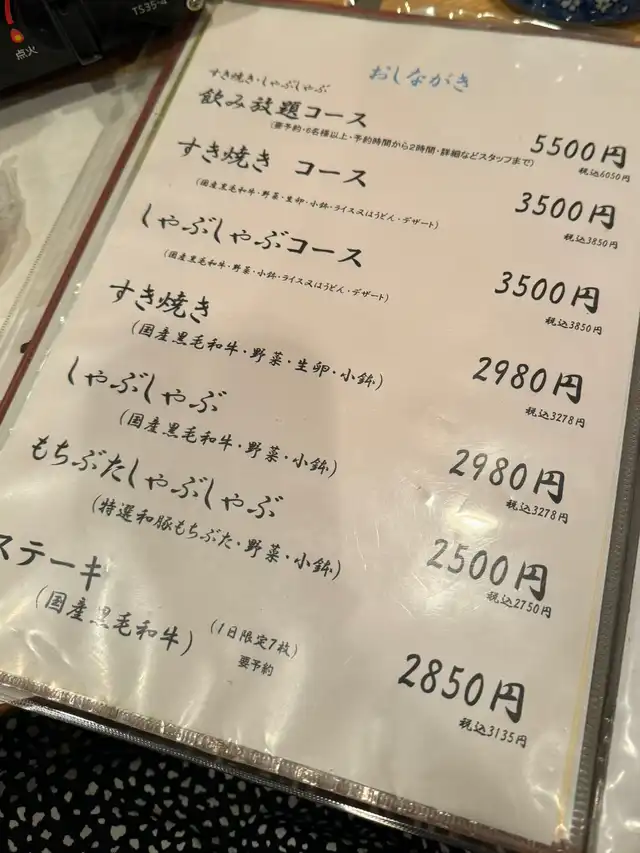 TS35-4
点火
おしながき
すき焼き・しゃぶしゃぶ
飲み放題コース
5500円
(要予約・6名様以上・予約時間から2時間・詳細などスタッフまで)
税込6050円
すき焼き コース
3500円
(国産黒毛和牛・野菜・生卵・小鉢・ライス又はうどん・デザート)
税込3850円
しゃぶしゃぶコース
3500円
(国産黒毛和牛・野菜・小鉢・ライス又はうどん・デザート)
税込3850円
すき焼き
2980円
(国産黒毛和牛・野菜・生卵・小鉢)
税込3278円
しゃぶしゃぶ
2980円
(国産黒毛和牛・野菜・小鉢)
税込3278円
もちぶたしゃぶしゃぶ
2500円
(特選和豚もちぶた・野菜・小鉢)
税込2750円
ステーキ
(国産黒毛和牛)
(1日限定7枚)
要予約
2850円
税込3135円